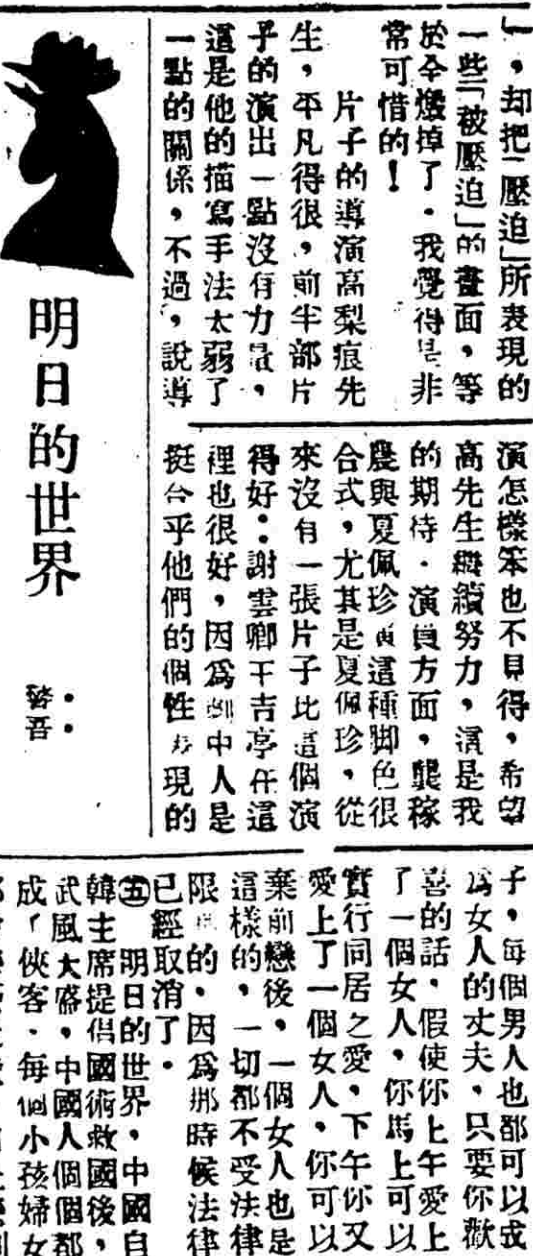 」，却把「壓迫」所表現的
一些「被壓迫」的畫面，等
於全燬掉了．我覺得是非
常可惜的！
片子的導演高梨痕先
生，平凡得很，前半部片
子的演出一點沒有力量，
這是他的描寫手法太弱了
一點的關係，不過，說導
演怎樣笨也不見得，希望
高先生繼續努力，這是我
的期待．演員方面，龔稼
農與夏佩珍這種脚色很
合式，尤其是夏佩珍，從
來沒有一張片子比這個演
得好：謝雲卿王吉亭任這
裡也很好，因爲劇中人是
挺合乎他們的個性表現的
明日的世界
子，每個男人也都可以成
爲女人的丈夫，只要你歡
喜的話，假使你上午愛上
了一個女人，你馬上可以
實行同居之愛，下午你又
愛上了一個女人，你可以
棄前戀後，一個女人也是
這樣的，一切都不受法律
限的，因爲那時候法律
已經取消了．
㊄明日的世界，中國自
韓主席提倡國術救國後，
武風大盛，中國人個個都
成「俠客．每個小孩婦女